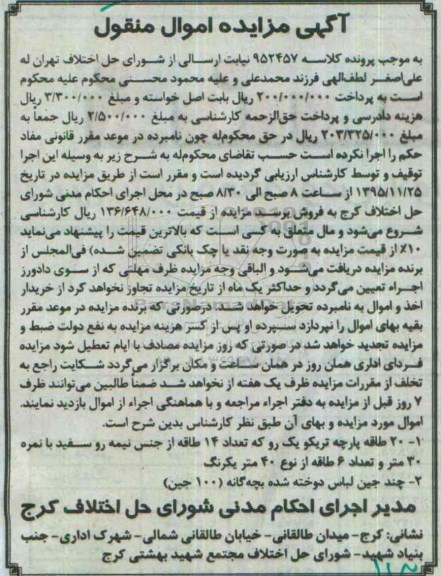 آگهی مزایده اموال منقول
به موجب پرونده کلاسه ۹۵۲۴۵۷ نیابت ارسالی از شورای حل اختلاف تهران له
علی‌اصغر لطف‌الهی فرزند محمدعلی و علیه محمود محسنی محکوم علیه محکوم
است به پرداخت ۲۰۰/۰۰۰/۰۰۰ ریال بابت اصل خواسته و مبلغ ۳/۳۰۰/۰۰۰ ریال
هزینه دادرسی و پرداخت حق‌الزحمه کارشناسی به مبلغ ۲/۵۰۰/۰۰۰ ریال جمعاً به
مبلغ ۲۰۳/۳۲۵/۰۰۰ ریال در حق محکوم‌له چون نامبرده در موعد مقرر قانونی مفاد
حکم را اجرا نکرده است حسب تقاضای محکوم‌له به شرح زیر به وسیله این اجرا
توقیف و توسط کارشناس ارزیابی گردیده است و مقرر است از طریق مزایده در تاریخ
۱۳۹۵/۱۱/۲۵ از ساعت ۸ صبح الی ۸/۳۰ صبح در محل اجرای احکام مدنی شورای
حل اختلاف کرج به فروش برسد مزایده از قیمت ۱۳۶/۶۴۸/۰۰۰ ریال کارشناسی
شروع می‌شود و مال متعلق به کسی است که بالاترین قیمت را پیشنهاد می‌نماید
۱۰٪ از قیمت مزایده به صورت وجه نقد یا چک بانکی تضمین شده) فی‌المجلس از
برنده مزایده دریافت می‌شود و الباقی وجه مزایده ظرف مهلتی که از سوی دادورز
اجراء تعیین می‌گردد و حداکثر یک ماه از تاریخ مزایده تجاوز نخواهد کرد از خریدار
اخذ و اموال به نامبرده تحویل خواهد شد. درصورتی که برنده مزایده در موعد مقرر
بقیه بهای اموال را نپردازد سپرده او پس از کسر هزینه مزایده به نفع دولت ضبط و
مزایده تجدید خواهد شد در صورتی که روز مزایده مصادف با ایام تعطیل شود مزایده
فردای اداری همان روز در همان ساعت و مکان برگزار می‌گردد شکایت راجع به
تخلف از مقررات مزایده ظرف یک هفته از نخواهد شد ضمناً طالبین می‌توانند ظرف
۷ روز قبل از مزایده به دفتر اجراء مراجعه و با هماهنگی اجراء از اموال بازدید نمایند.
اموال مورد مزایده و بهای آن طبق نظر کارشناس بدین شرح است.
۱- ۲۰ طاقه پارچه تریکو یک رو که تعداد ۱۴ طاقه از جنس نیمه رو سفید با نمره
۳۰ متر و تعداد ۶ طاقه از نوع ۴۰ متر یکرنگ
۲- چند جین لباس دوخته شده بچه‌گانه (۱۰۰ جین)
مدیر اجرای احکام مدنی شورای حل اختلاف کرج
نشانی: کرج- میدان طالقانی- خیابان طالقانی شمالی- شهرک اداری- جنب
بنیاد شهید- شورای حل اختلاف مجتمع شهید بهشتی کرج